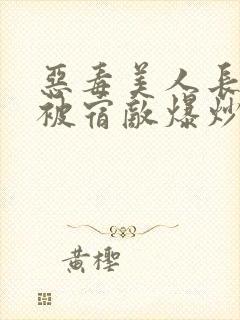 惡毒美人長
被宿敵爆炒
黃櫻